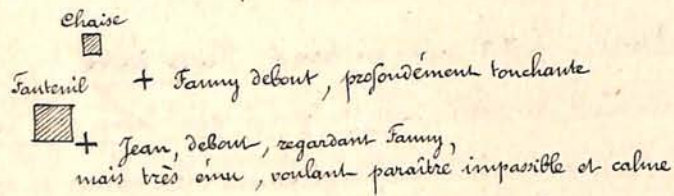 Chaise
+ Fanny debout, profondément touchante
Fauteuil
+ Jean, debout, regardant Fanny,
mais très ému, voulant paraître impassible et calme